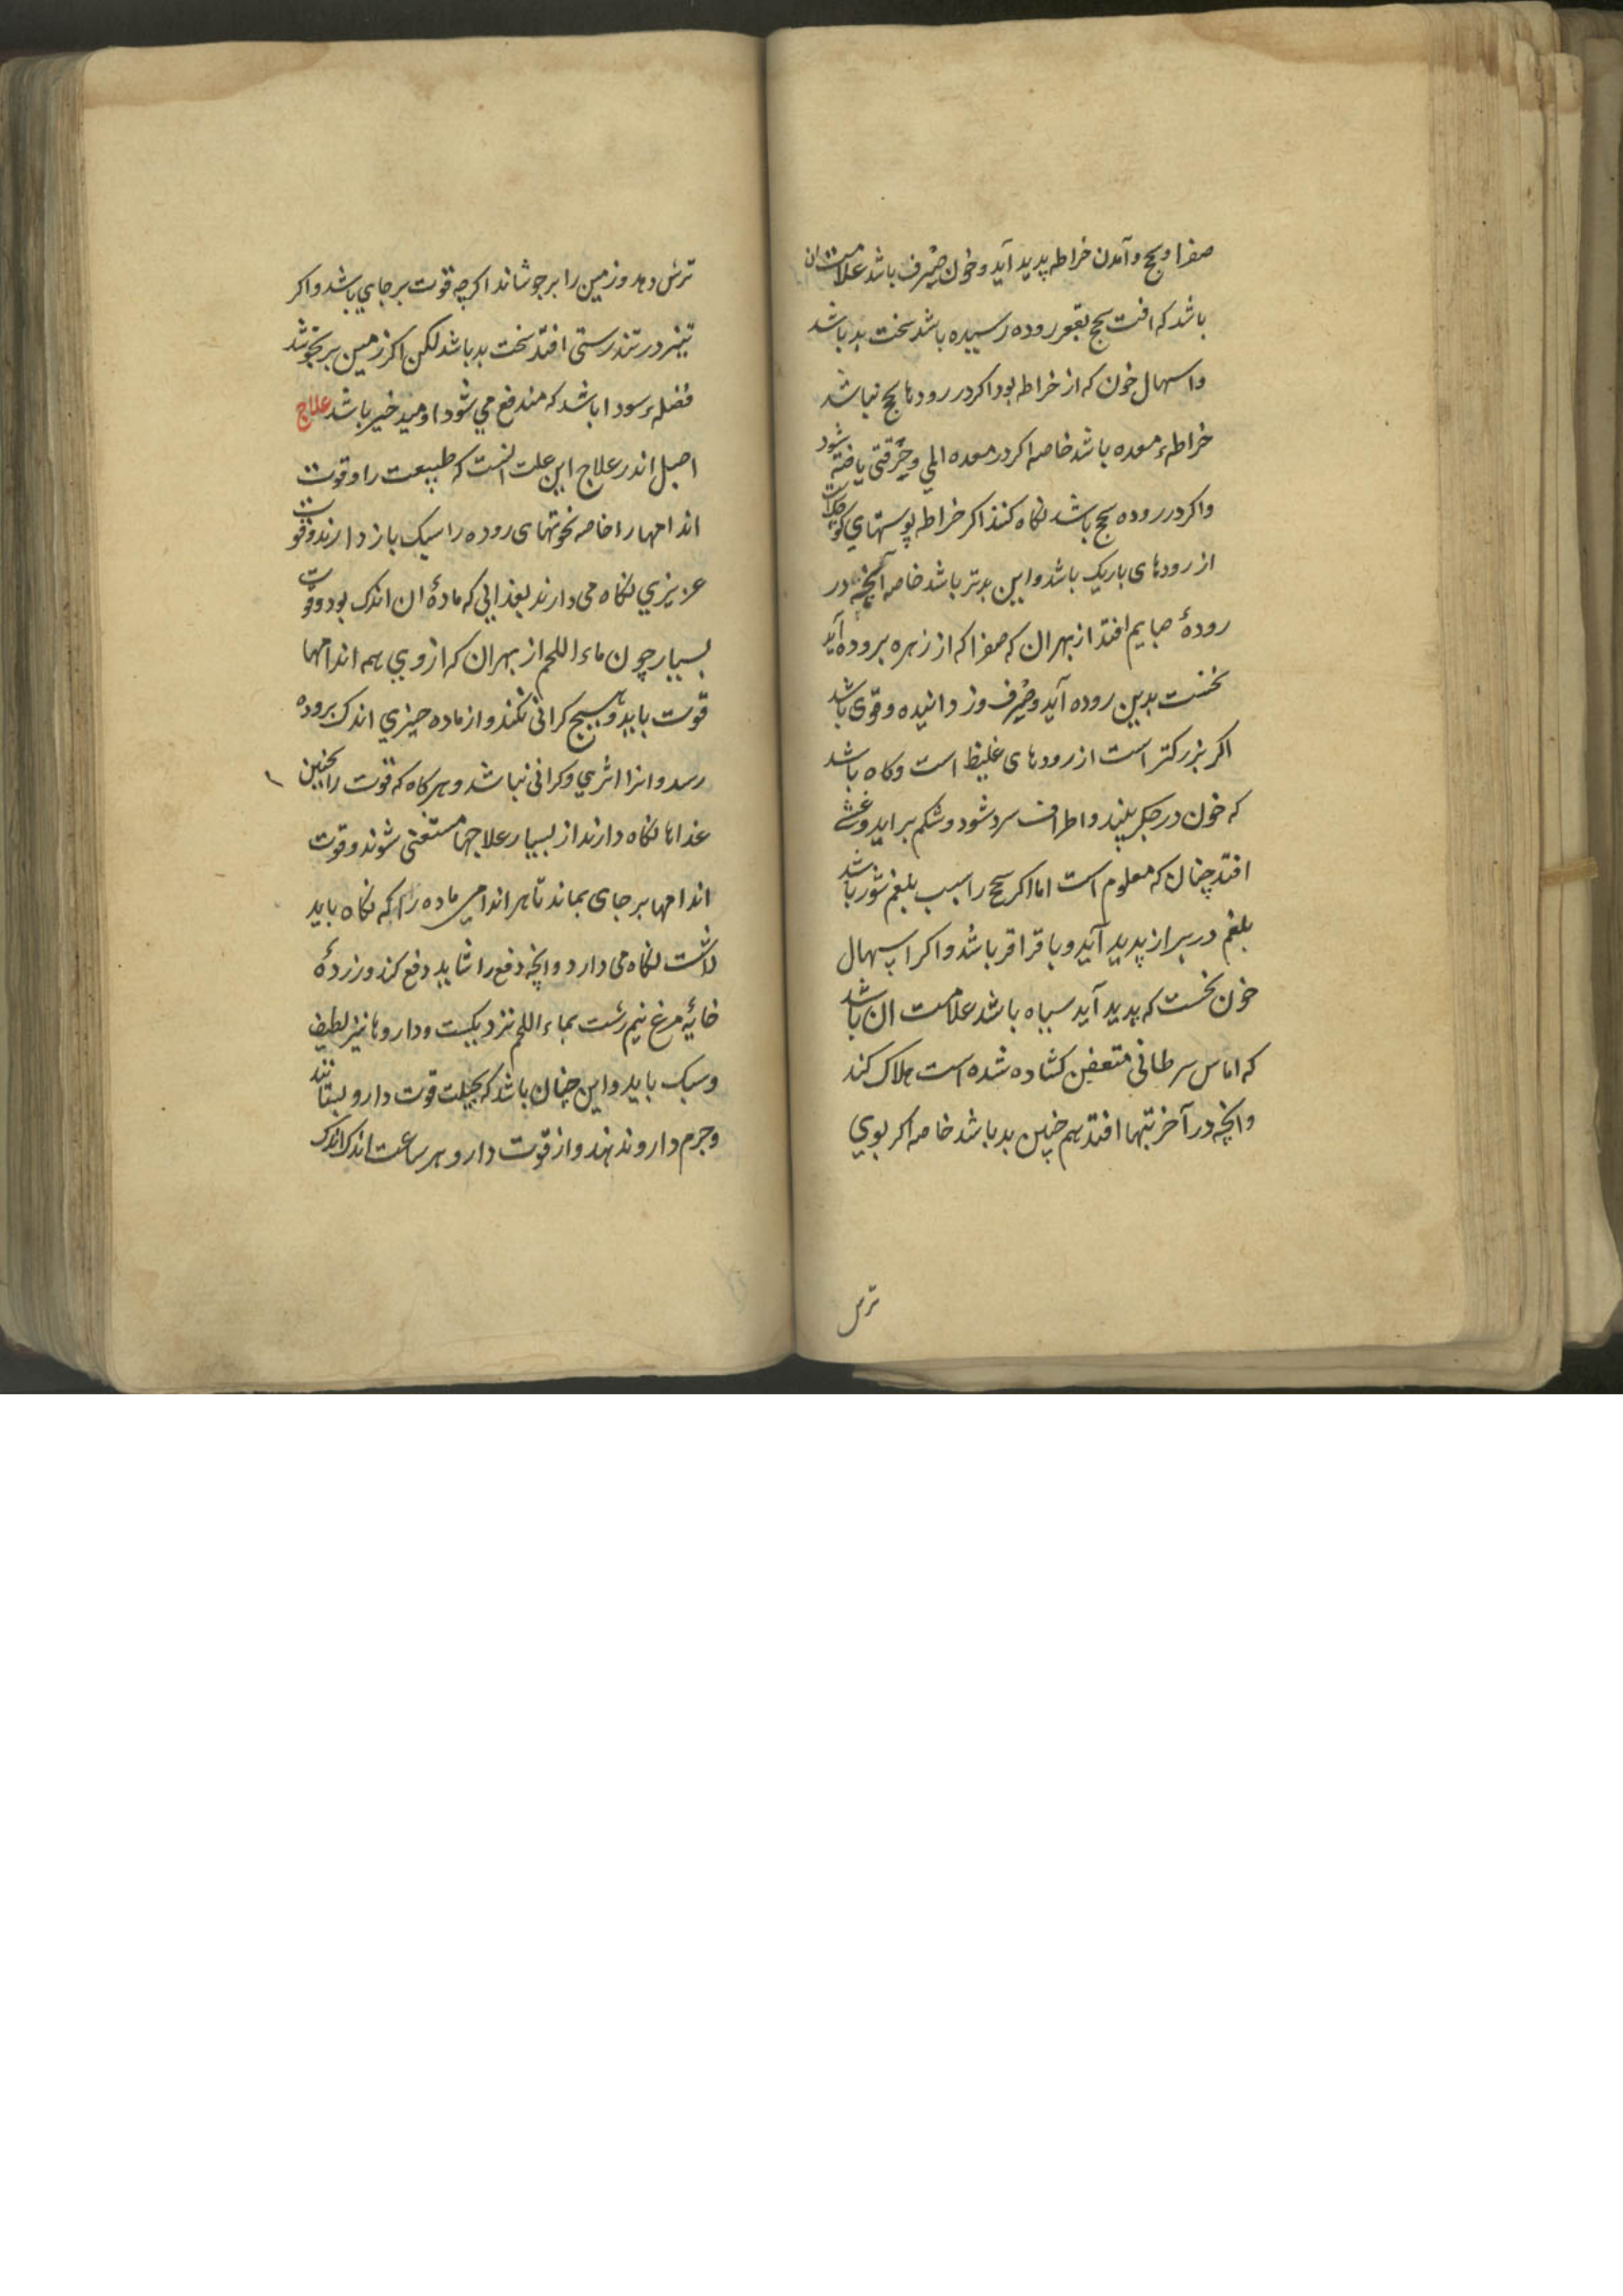 صفرا و سحج و آمدن خراطه پدید آید و خون صِرف باشد علامت ان
باشد که افت سحج بقعر روده رسیده باشد سخت بد باشد
و اسهال خون که از خراطه بود اکر در رودها سحج نباشد
خراطهء معده باشد خاصه اکر در معده المی و حُرقتی یافته شود
و اکر در روده سحج باشد نکاه کنند اکر خراطه پوستهای کوچک است
از رودهای باریک باشد و این بدتر باشد خاصه آنچه در
رودهٔ صایم افتد از بهر ان که صفرا که از زهره بروده آید
نخست بدین روده آید و صِرف و زدانیده و قوی باشد
اکر بزرکتر است از رودهای غلیظ است و کاه باشد
که خون در جکر ببندد و اطراف سرد شود و شکم براید و غشی
افتد چنان که معلوم است اما اکر سحج را سبب بلغم شور باشد
بلغم در براز پدید آید و با قراقر باشد و اکر اسهال
خون نخست که پدید آید سیاه باشد علامت ان باشد
که اماس سرطانی متعفن کشاده شده است هلاک کند
و انچه در آخر تبها افتد هم چنین بد باشد خاصه اکر بوی
ترش
ترش دهد و زمین را برجوشاند اکرچه قوت بر جای باشد و اکر
نیز در تندرستی افتد سخت بد باشد لکن اکر زمین بر نجوشد
فضلهء سودا باشد که مندفع می شود اومید خیر باشد علاج
اصل اندر علاج این علت انست که طبیعت را و قوت
اندامها را خاصه نحوتهای روده را سبک باز دارند و قوت
عزیزی نکاه می دارند بغذایی که مادهٔ ان اندک بود و قوت
بسیار چون ماء اللحم از بهر ان که از وی همه اندامها
قوت یابد و هیچ کرانی نکند و از ماده چیزی اندک بروده
رسد و انرا اثری و کرانی نباشد و هرکاه که قوت را بچنین
غذاها نکاه دارند از بسیار علاجها مستغنی شوند و قوت
اندامها بر جای بماند تا هر اندامی ماده را که نکاه باید
داشت نکاه می دارد و انچه دفع را شاید دفع کند و زردهٔ
خایهٔ مرغ نیم رشت بماء اللحم نزدیکست و داروها نیز لطیف
و سبک باید و این چنان باشد که بحیلت قوت دارو بستانند
و جرم دارو ندهند و از قوت دارو هر ساعت اندک اندک